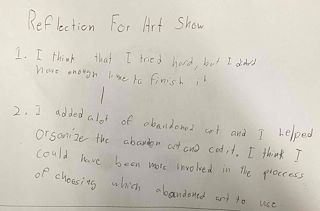 Reflection For Art Show
1. I think that I tried hard, but I didn't
have enough time to finish it
2. I added alot of abandoned art and I helped
organize the abandon art and cut it. I think I
could have been more involved in the proccess
of choosing which abandoned art to use